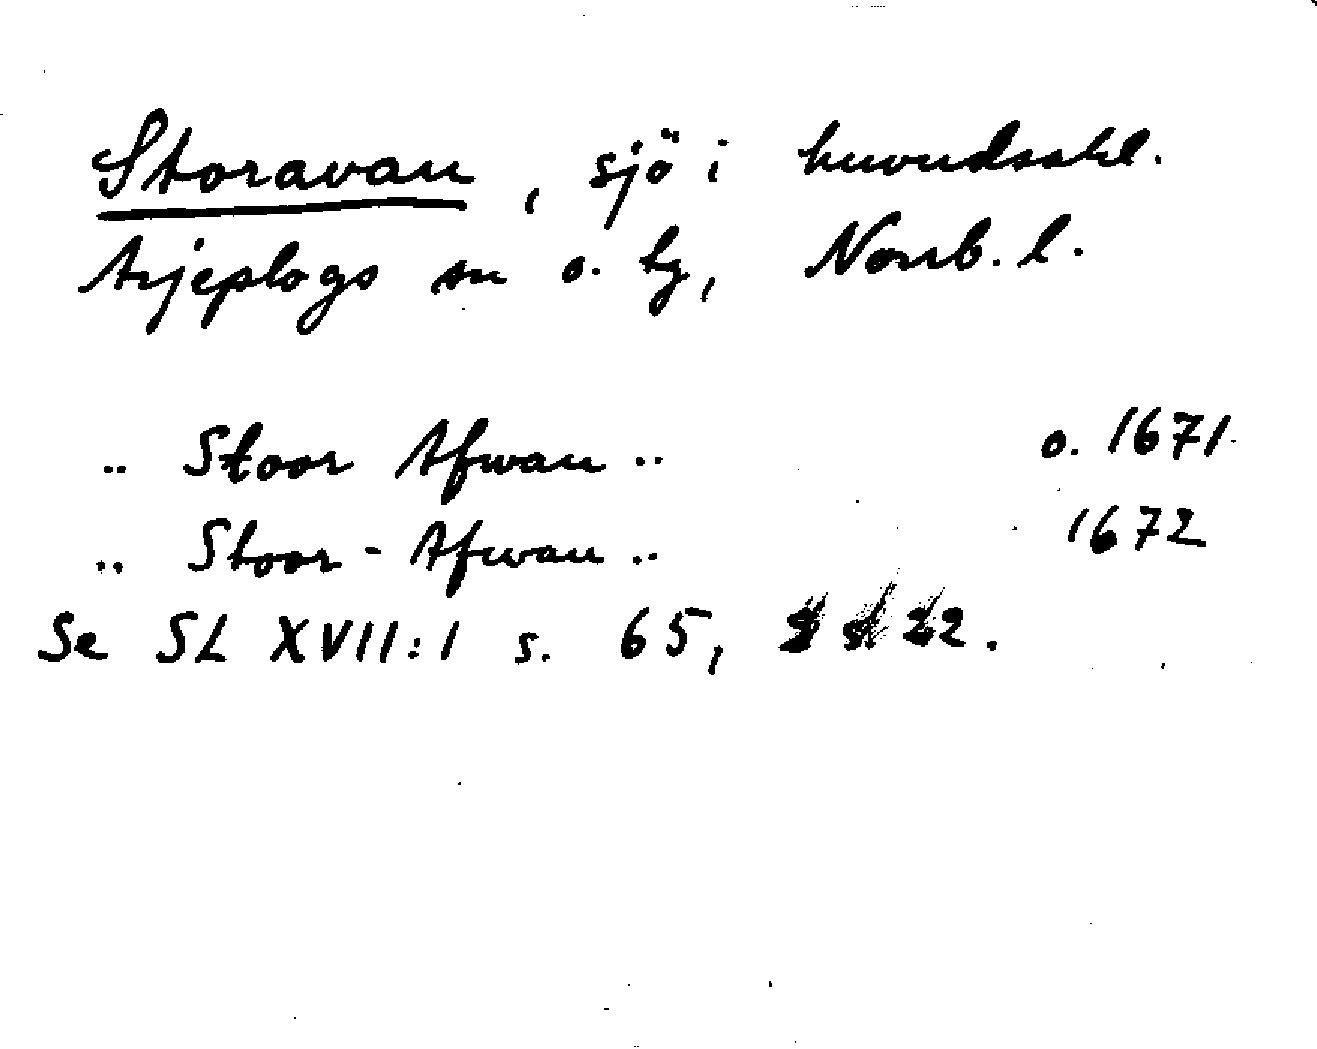 Storavan, sjö i huvudsakl.
Arjeplogs sn o. tg, Norrb. l.
.. Stoor Afwan .. o. 1671
.. Stoor-Afwan .. 1672
Se SL XVII:1 s. 65, 22.